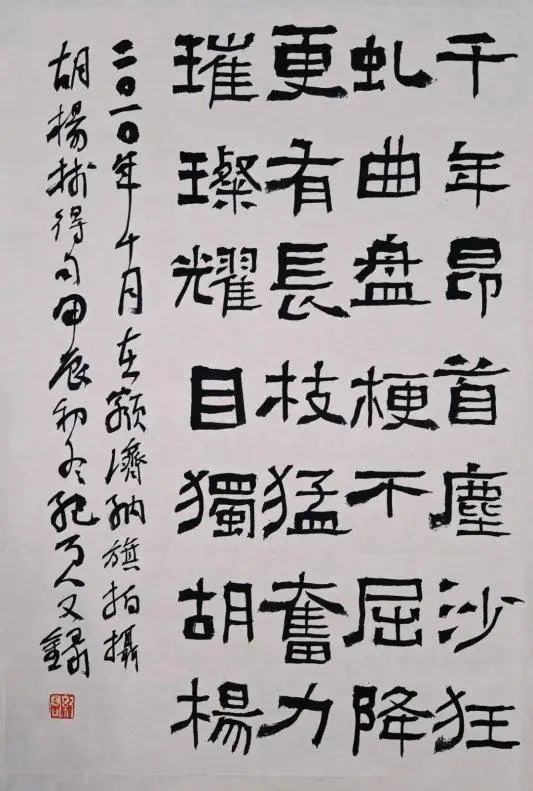 千年昂首塵沙狂
虬曲盘梗不屈降
更有長枝猛奮力
璀璨耀目獨胡楊
二〇一〇年十月在額濟納旗拍攝
胡楊树得句甲辰初冬人又錄